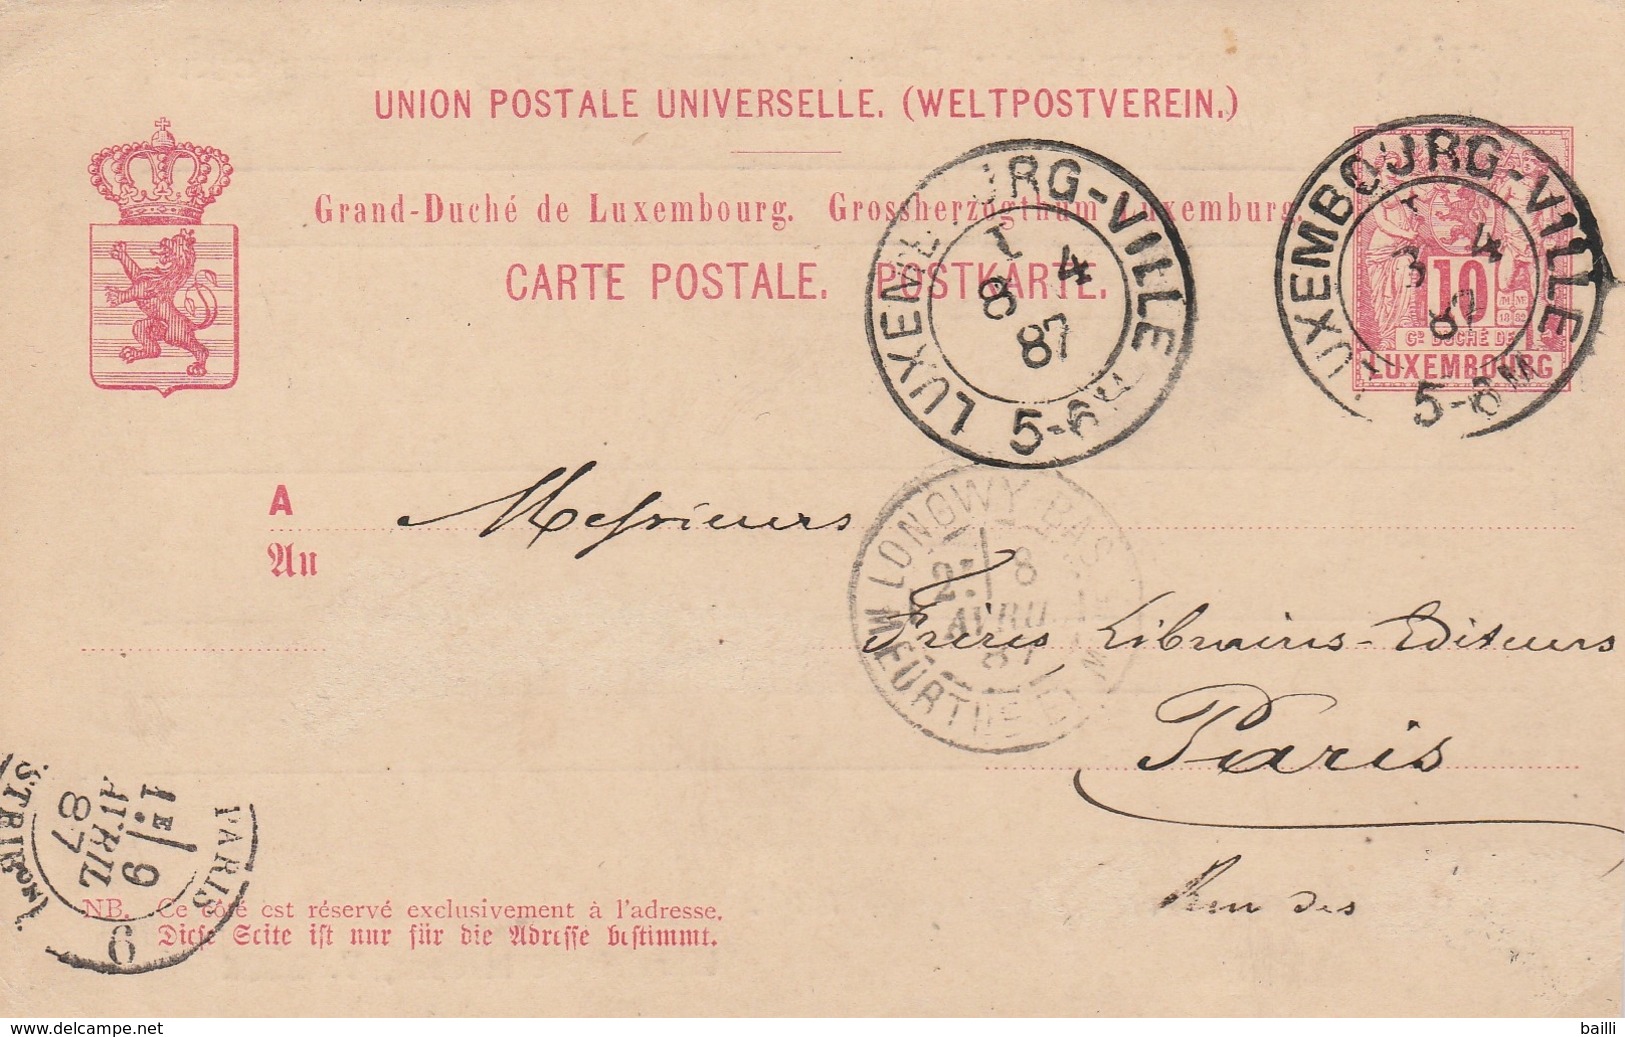 UNION POSTALE UNIVERSELLE. (WELTPOSTVEREIN.)
Grand-Duché de Luxembourg. Grossherzogthum Luxemburg.
CARTE POSTALE. POSTKARTE.
LUXEMBOURG-VILLE
4
8
87
5-6
LUXEMBOURG-VILLE
3 4
87
5-6
10
1882
GD DUCHÉ DE
LUXEMBOURG
A Messieurs
An
LONGWY-BAS
8
AVRIL
87
MEURTHE ET M
Frères Libraires-Editeurs
Paris
des
PARIS
1E 9
AVRIL
87
6
NB. Ce côté est réservé exclusivement à l'adresse.
Diese Seite ist nur für die Adresse bestimmt.
www.delcampe.net
bailli